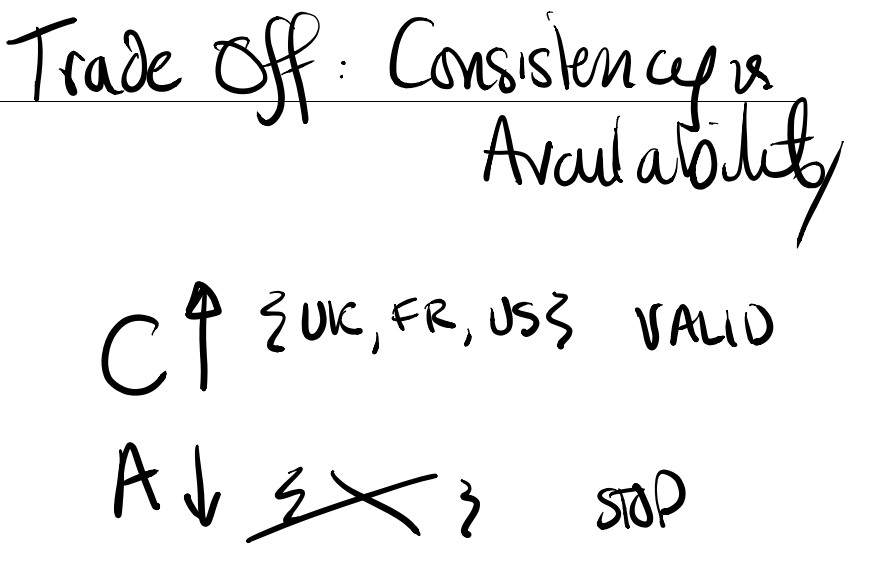 Trade Off: Consistency vs
Availability
C ↑ {UK, FR, US} VALID
A ↓ { } STOP